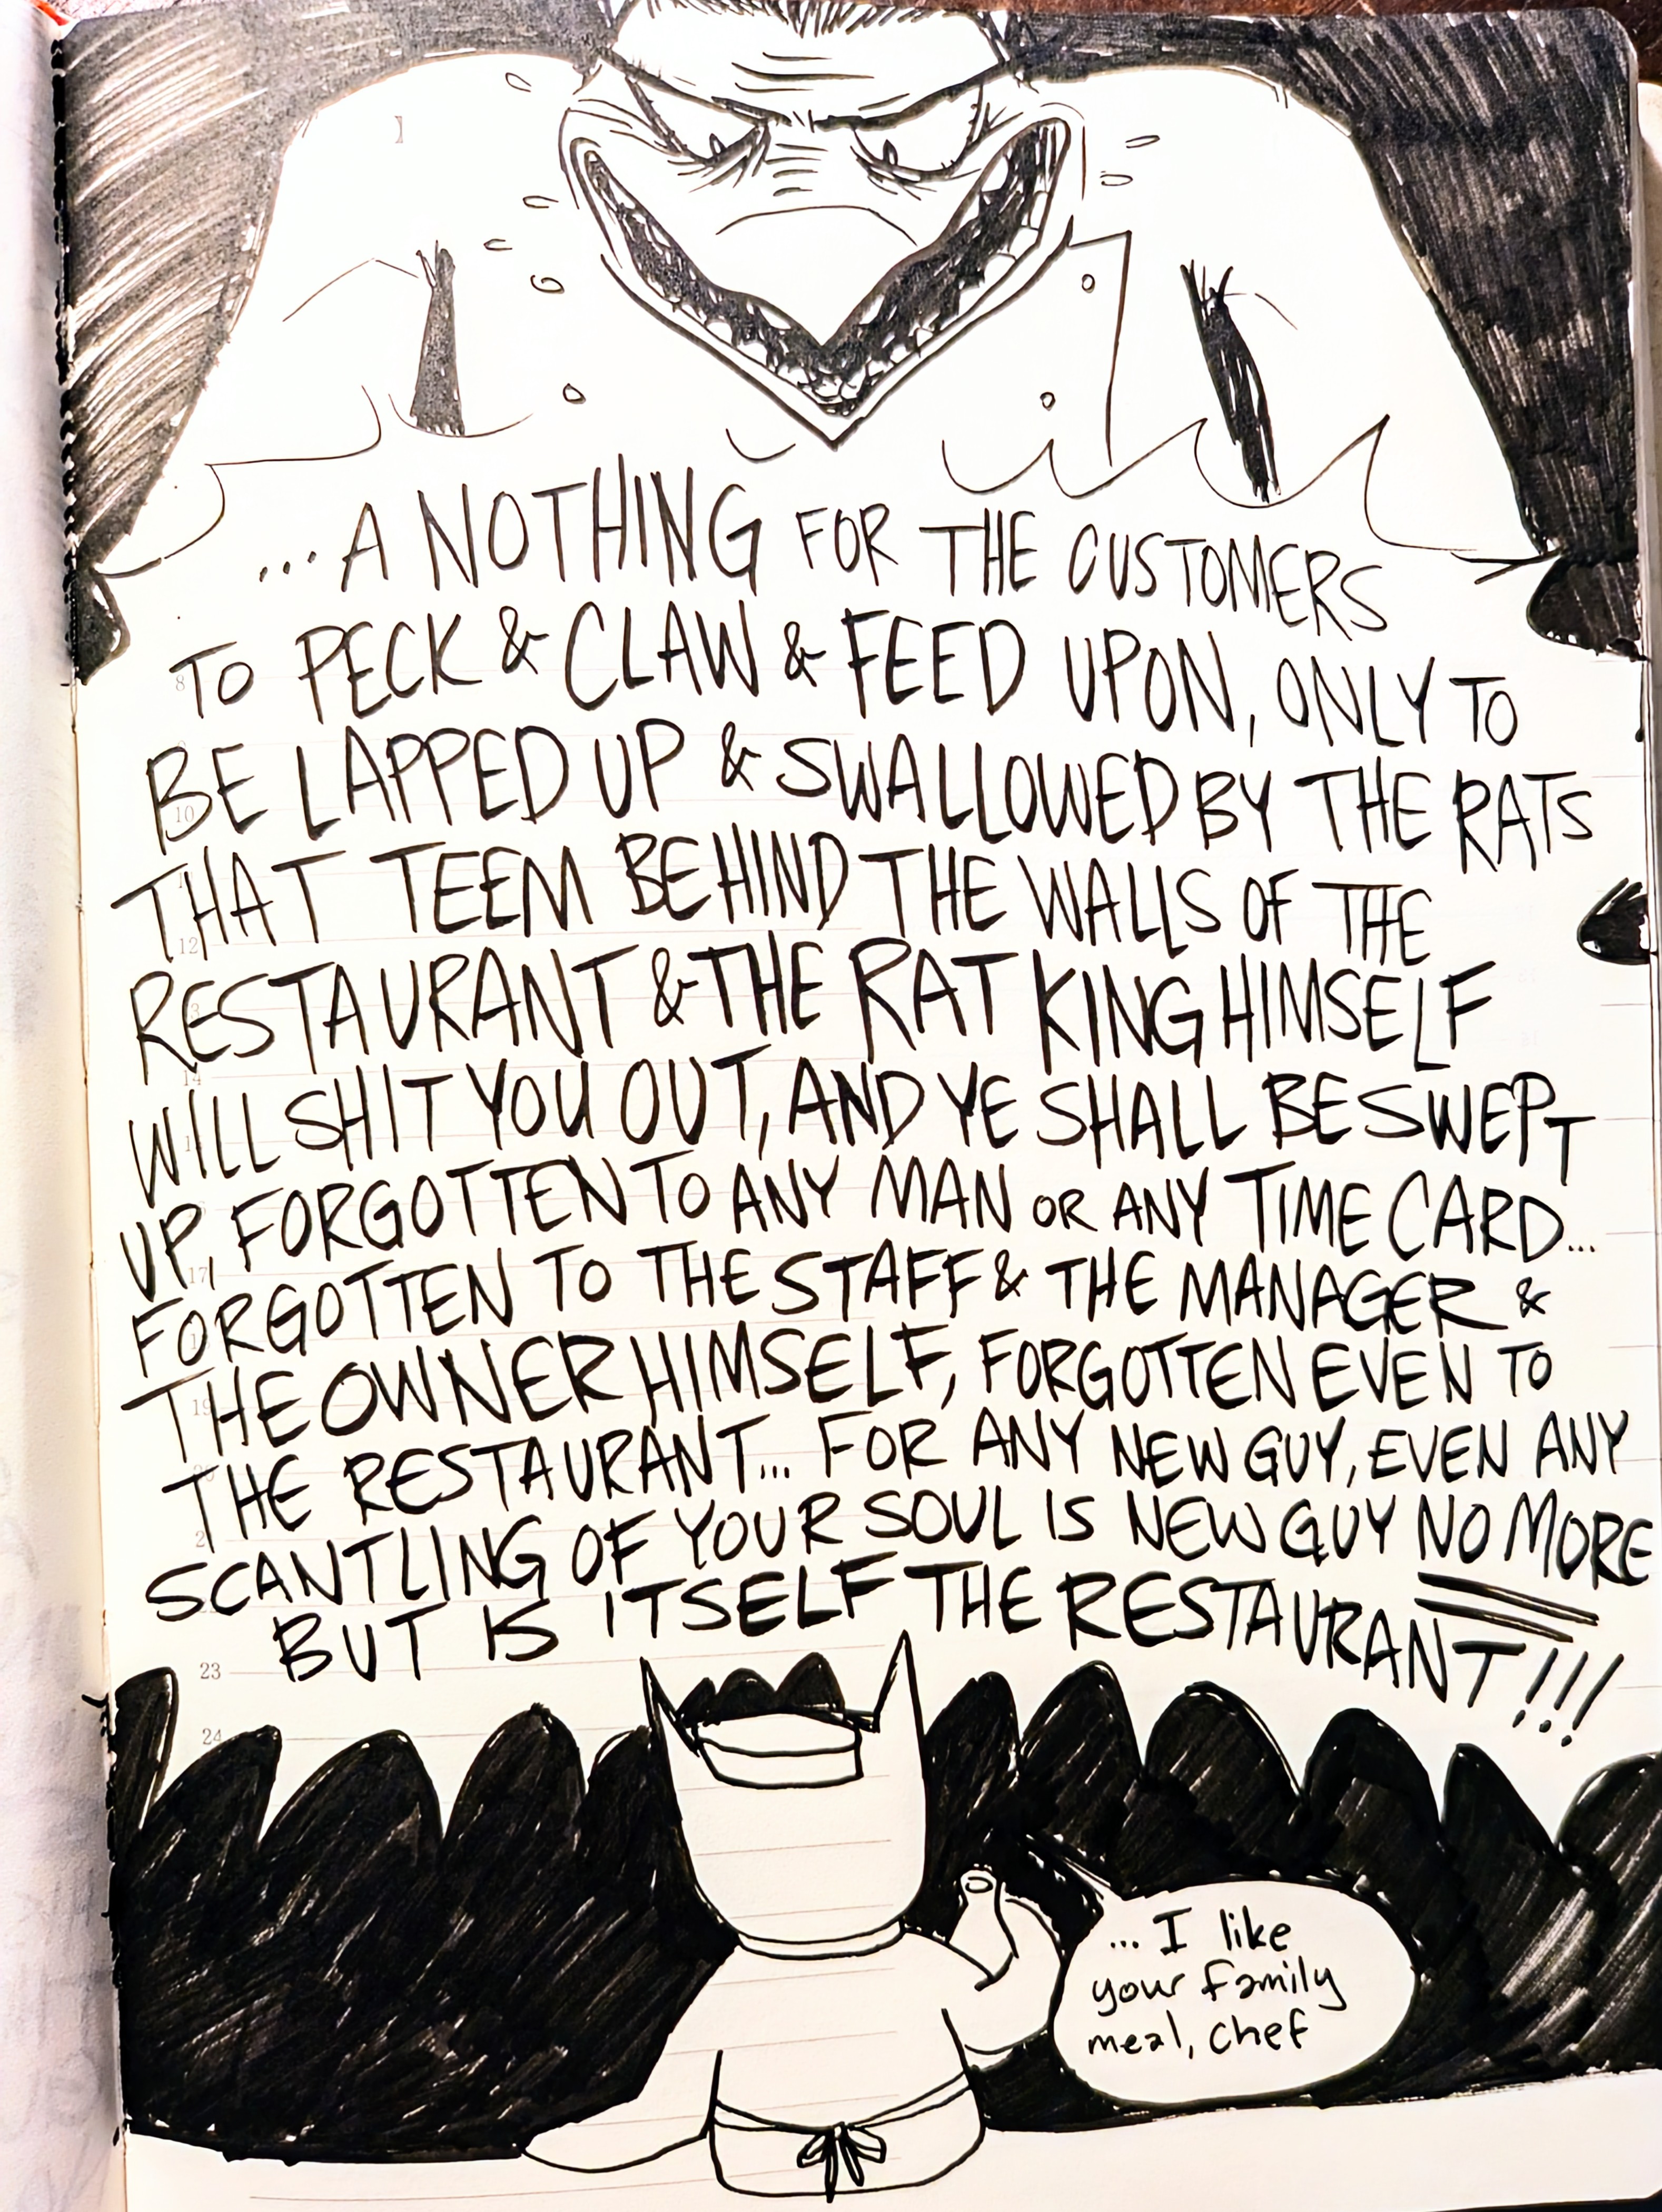 ...A NOTHING FOR THE CUSTOMERS
TO PECK & CLAW & FEED UPON, ONLY TO
BE LAPPED UP & SWALLOWED BY THE RATS
THAT TEEM BEHIND THE WALLS OF THE
RESTAURANT & THE RAT KING HIMSELF
WILL SHIT YOU OUT, AND YE SHALL BE SWEPT
UP, FORGOTTEN TO ANY MAN OR ANY TIME CARD...
FORGOTTEN TO THE STAFF & THE MANAGER &
THE OWNER HIMSELF, FORGOTTEN EVEN TO
THE RESTAURANT... FOR ANY NEW GUY, EVEN ANY
SCANTLING OF YOUR SOUL IS NEW GUY NO MORE
BUT IS ITSELF THE RESTAURANT!!!
23
24
... I like
your family
meal, chef